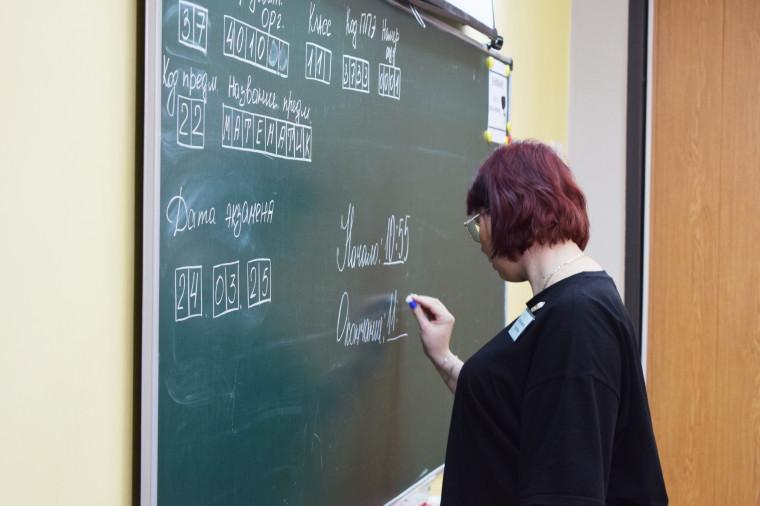 орг. Класс Код ППЭ Номер ауд
37 4010 11 3733 0001
Код предм. Название предм.
22 МАТЕМАТИК
Дата экзамена
24 . 03 . 25
Начало: 10:55
Окончание: 11: